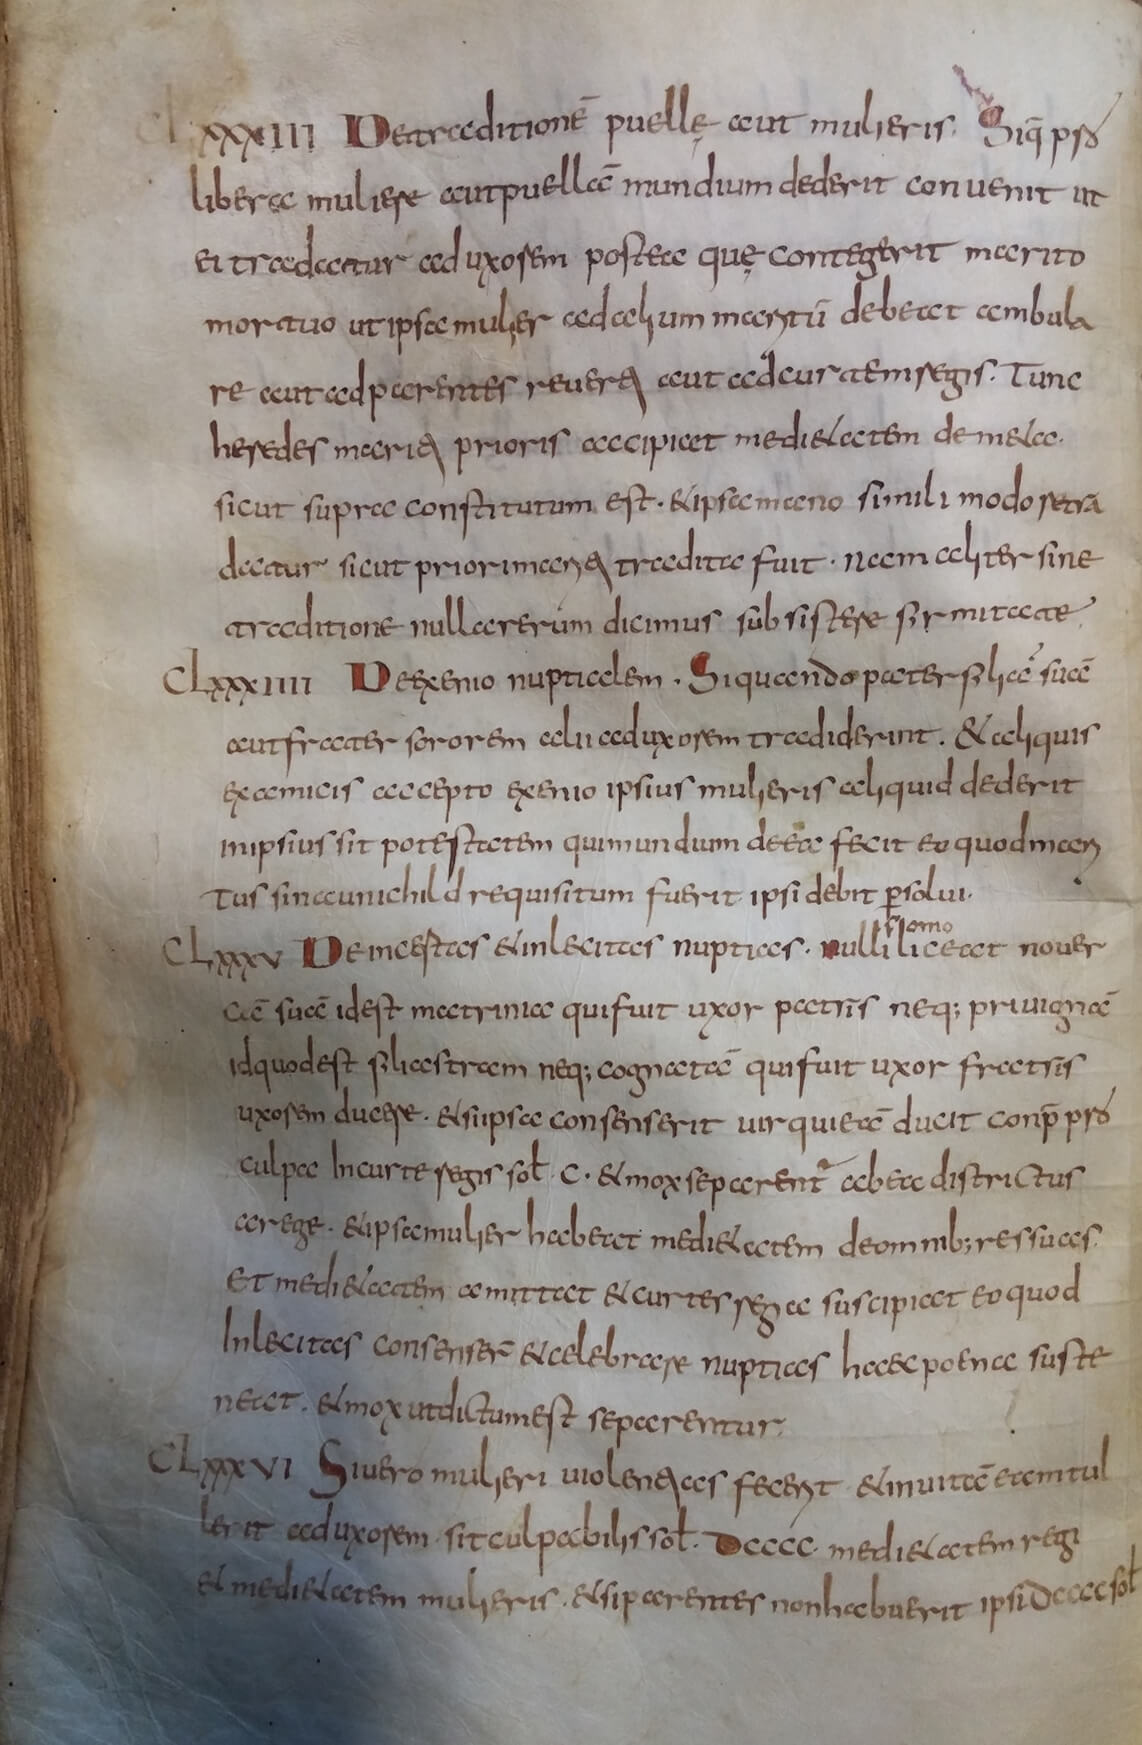 CLXXXIII De traditionē puellę aut mulieris. Siq̄ pro
libera muliere aut puellā mundium dederit convenit ut
ei tradatur ad uxorem postea quę contegerit marito
mortuo ut ipsa mulier ad alium maritū debeat ambula
re aut ad parentes reverti aut ad curtem regis. Tunc
heredes mariti prioris accipiat medietatem de meta.
sicut supra constitutum est. & ipsa mano simili modo retra
datur sicut priori mariti tradita fuit. nam aliter sine
traditione nulla rerum dicimus subsistere firmitate
CLXXXIIII De exenio nuptialem. Si quando pater filiā suā
aut frater sororem alii ad uxorem tradiderint. & aliquis
ex amicis accepto exenio ipsius mulieris aliquid dederit
in ipsius sit potestatem qui mundium de ea fecit eo quod mari
tus si launichild requisitum fuerit ipsi debit p̄solvi.
CLXXXV De incestas & inlecitas nuptias. nulli homo liceat nover
cā suā id est matrinia qui fuit uxor patris neq; privignā
id quod est filiastram neq; cognatā qui fuit uxor fratris
uxorem ducere. & si ipsa consenserit vir qui eā ducit conp̄ pro
culpa In curte regis sol C. & mox seperent ab ea districtus
a rege. & ipsa mulier habeat medietatem de omnib; res suas.
Et medietatem amittat & curtes regia suscipiat eo quod
Inlecitas consenser̄ & celebrare nuptias haec poena suste
neat. & mox ut dictum est seperentur.
CLXXXVI Si vero mulieri violentias fecerit & invitā eam tul
lerit ad uxorem sit culpabilis sol. DCCCC. medietatem regi
& medietatem mulieris. & si parentes non habuerit ipsi DCCCC sol